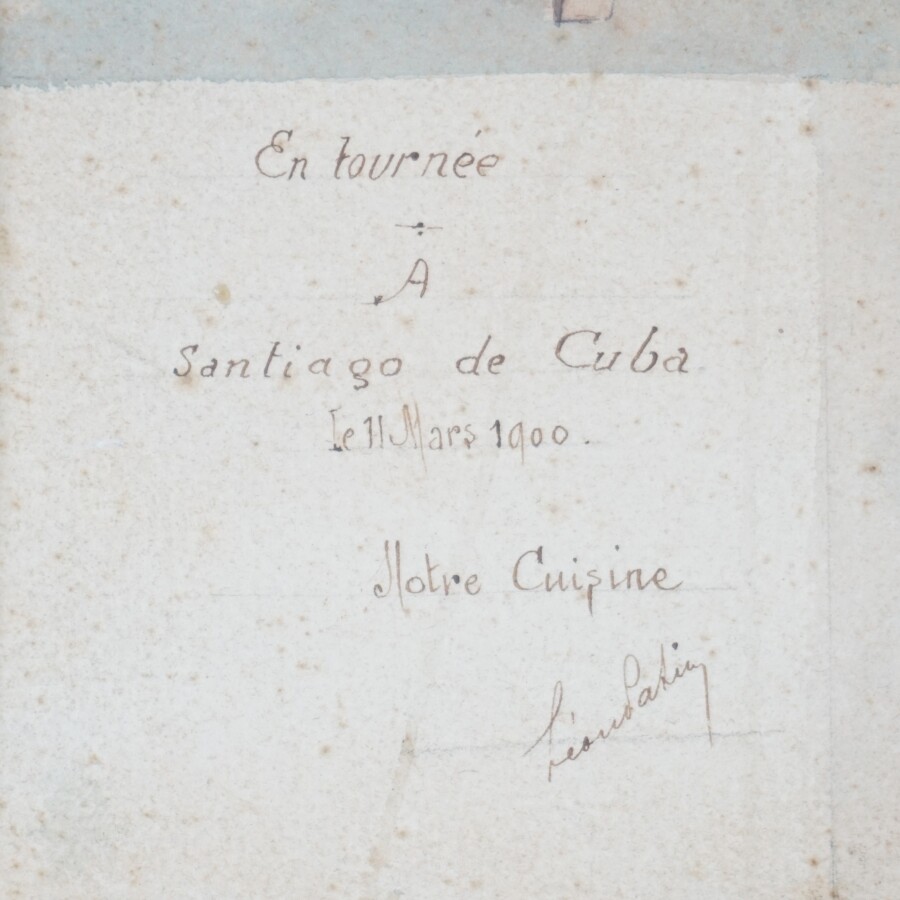 En tournée
A
Santiago de Cuba
le 11 Mars 1900.
Notre Cuisine